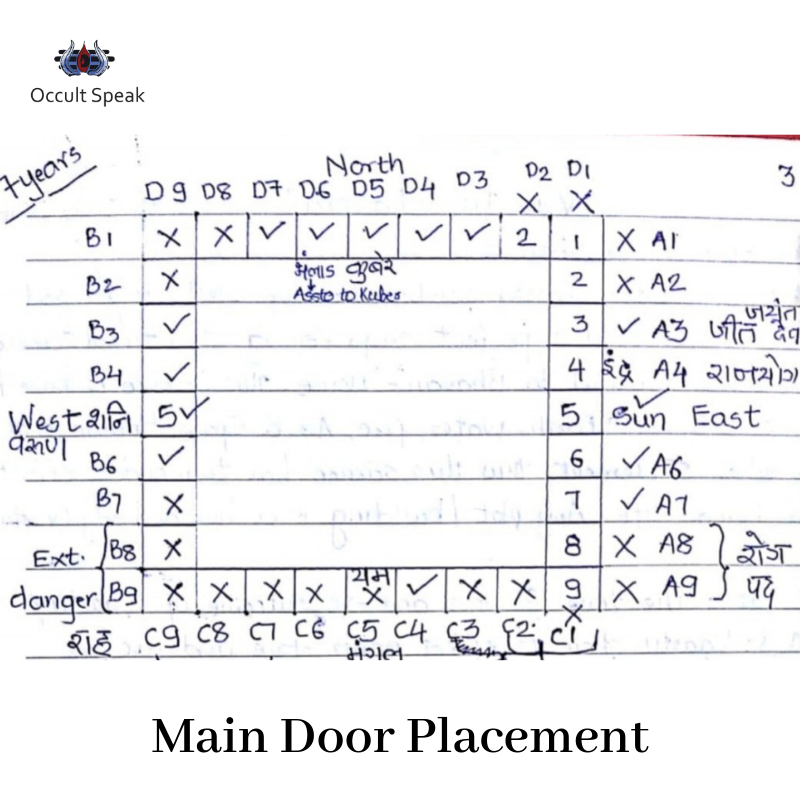 Occult Speak
7years North 3
D9 D8 D7 D6 D5 D4 D3 D2 D1
X X
B1 X X ✓ ✓ ✓ ✓ ✓ 2 1 X A1
B2 X कुबेर 2 X A2
Assto to Kuber
B3 ✓ 3 ✓ A3 जीत देव
जयंत
B4 ✓ 4 इंद्र A4 राजयोग
West शनि 5 ✓ 5 Sun ✓ East
वरुण
B6 ✓ 6 ✓ A6
B7 X 7 ✓ A7
Ext. B8 X 8 X A8 रोग
यम
danger B9 X X X X X ✓ X X 9 X A9 पद
X
राहु C9 C8 C7 C6 C5 C4 C3 C2 C1
मंगल
Main Door Placement